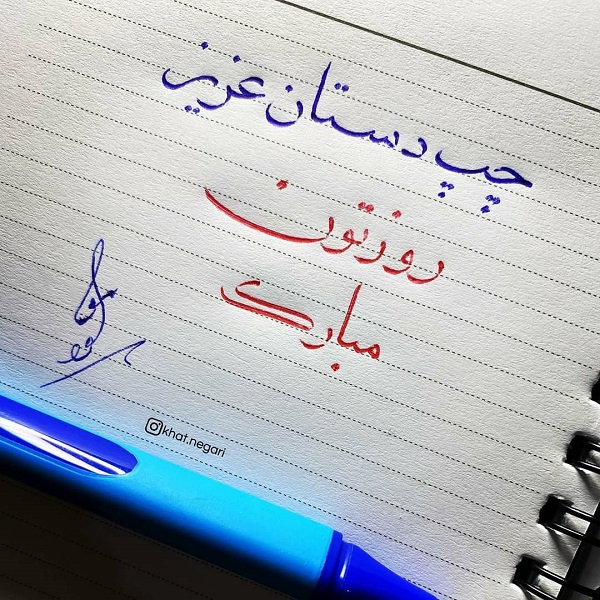 چپ دستان عزیز
روزتون
مبارک
khat.negari